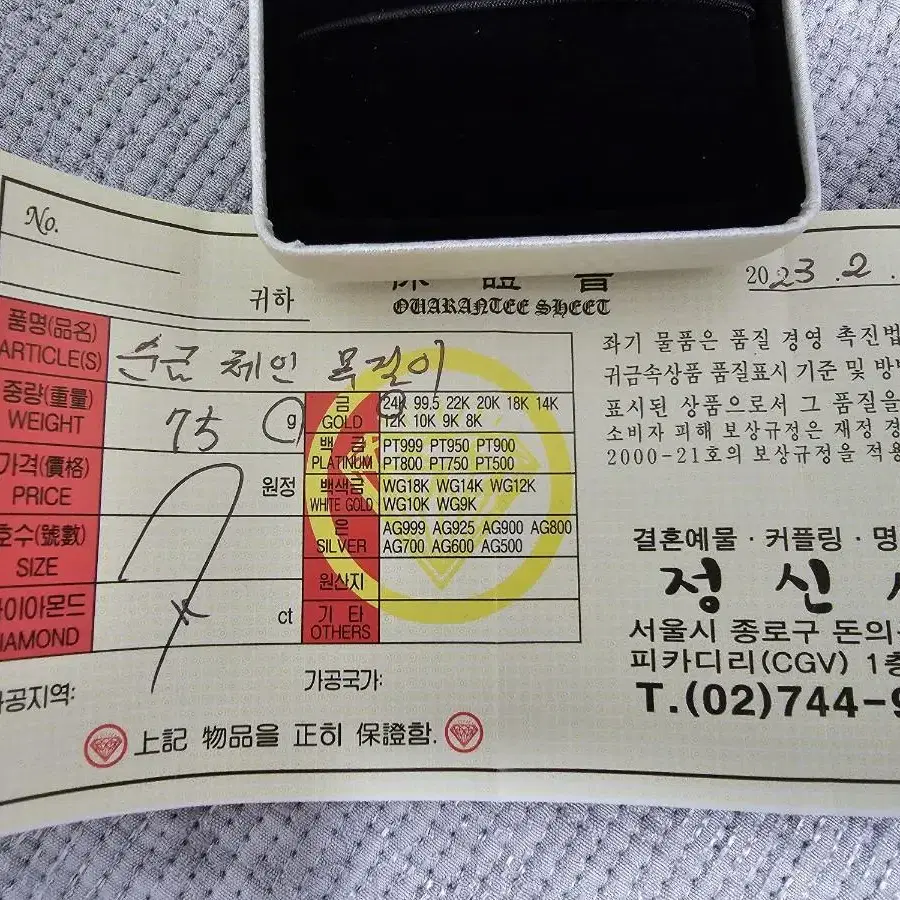 No.
귀하
保 證 書
QUARANTEE SHEET
2023.2.
품명(品名)
ARTICLE(S)
순금 체인 목걸이
중량(重量)
WEIGHT
75 g
가격(價格)
PRICE
원정
호수(號數)
SIZE
다이아몬드
DIAMOND
ct
금
GOLD
24K 99.5 22K 20K 18K 14K
12K 10K 9K 8K
백 금
PLATINUM
PT999 PT950 PT900
PT800 PT750 PT500
백색금
WHITE GOLD
WG18K WG14K WG12K
WG10K WG9K
은
SILVER
AG999 AG925 AG900 AG800
AG700 AG600 AG500
원산지
기 타
OTHERS
가공지역:
가공국가:
上記 物品을 正히 保證함.
좌기 물품은 품질 경영 촉진법
귀금속상품 품질표시 기준 및 방
표시된 상품으로서 그 품질을
소비자 피해 보상규정은 재정 경
2000-21호의 보상규정을 적용
결혼예물·커플링·명
정 신
서울시 종로구 돈의
피카디리(CGV) 1층
T.(02)744-9